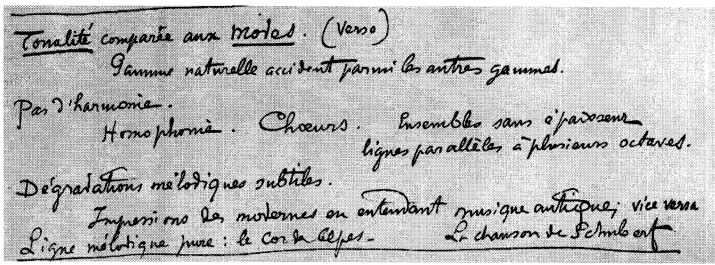 Tonalité comparée aux modes. (Verso)
Gamme naturelle accident parmi les autres gammes.
Pas d'harmonie.
Homophonie. Chœurs. Ensembles sans épaisseur
lignes parallèles à plusieurs octaves.
Dégradations mélodiques subtiles.
Impressions des modernes en entendant musique antique; vice versa
Ligne mélodique pure: le Cor des Alpes. La chanson de Schubert